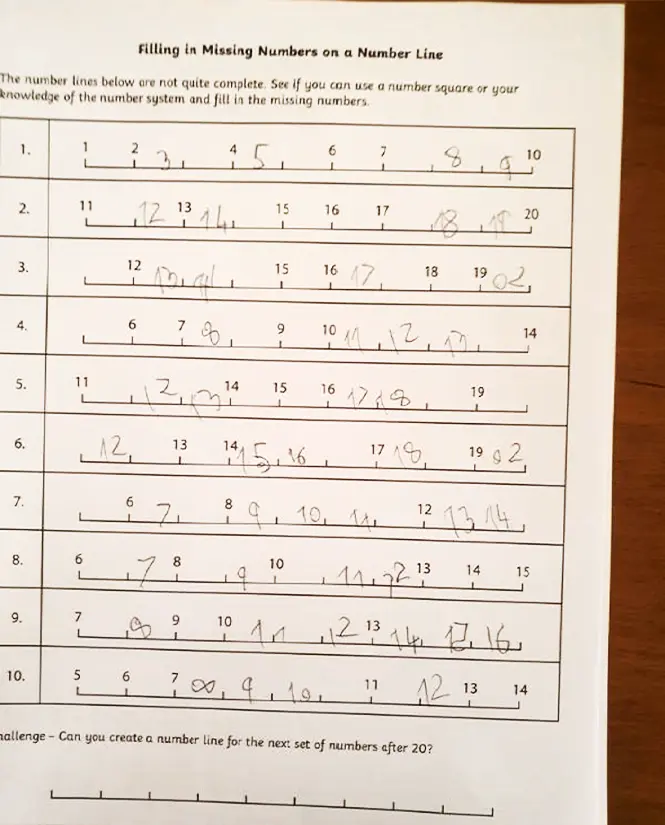 Filling in Missing Numbers on a Number Line
The number lines below are not quite complete. See if you can use a number square or your
knowledge of the number system and fill in the missing numbers.
1. 1 2 3 4 5 6 7 8 9 10
2. 11 12 13 14 15 16 17 18 19 20
3. 12 13 14 15 16 17 18 19 02
4. 6 7 8 9 10 11 12 13 14
5. 11 12 13 14 15 16 17 18 19
6. 12 13 14 15 16 17 18 19 02
7. 6 7 8 9 10 11 12 13 14
8. 6 7 8 9 10 11 12 13 14 15
9. 7 8 9 10 11 12 13 14 16
10. 5 6 7 8 9 10 11 12 13 14
hallenge – Can you create a number line for the next set of numbers after 20?